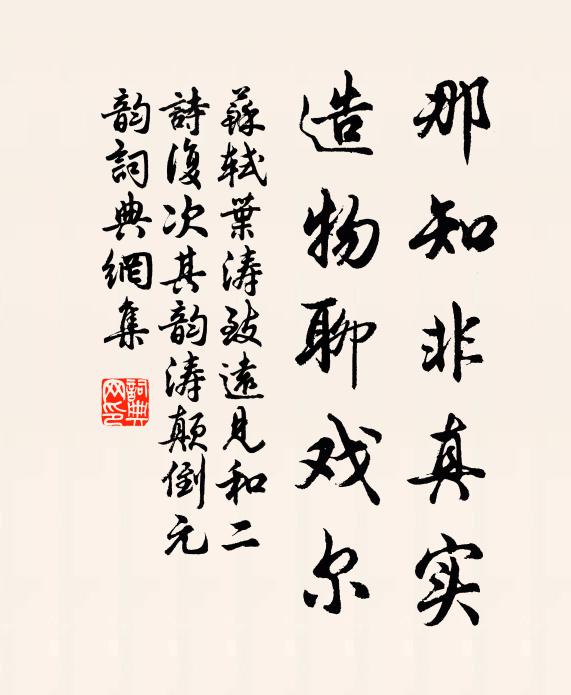 那知非真实
造物聊戏尔
蘇軾葉涛致遠見和二
詩復次其韵涛颠倒元
韵詞典網集
詞典
网印